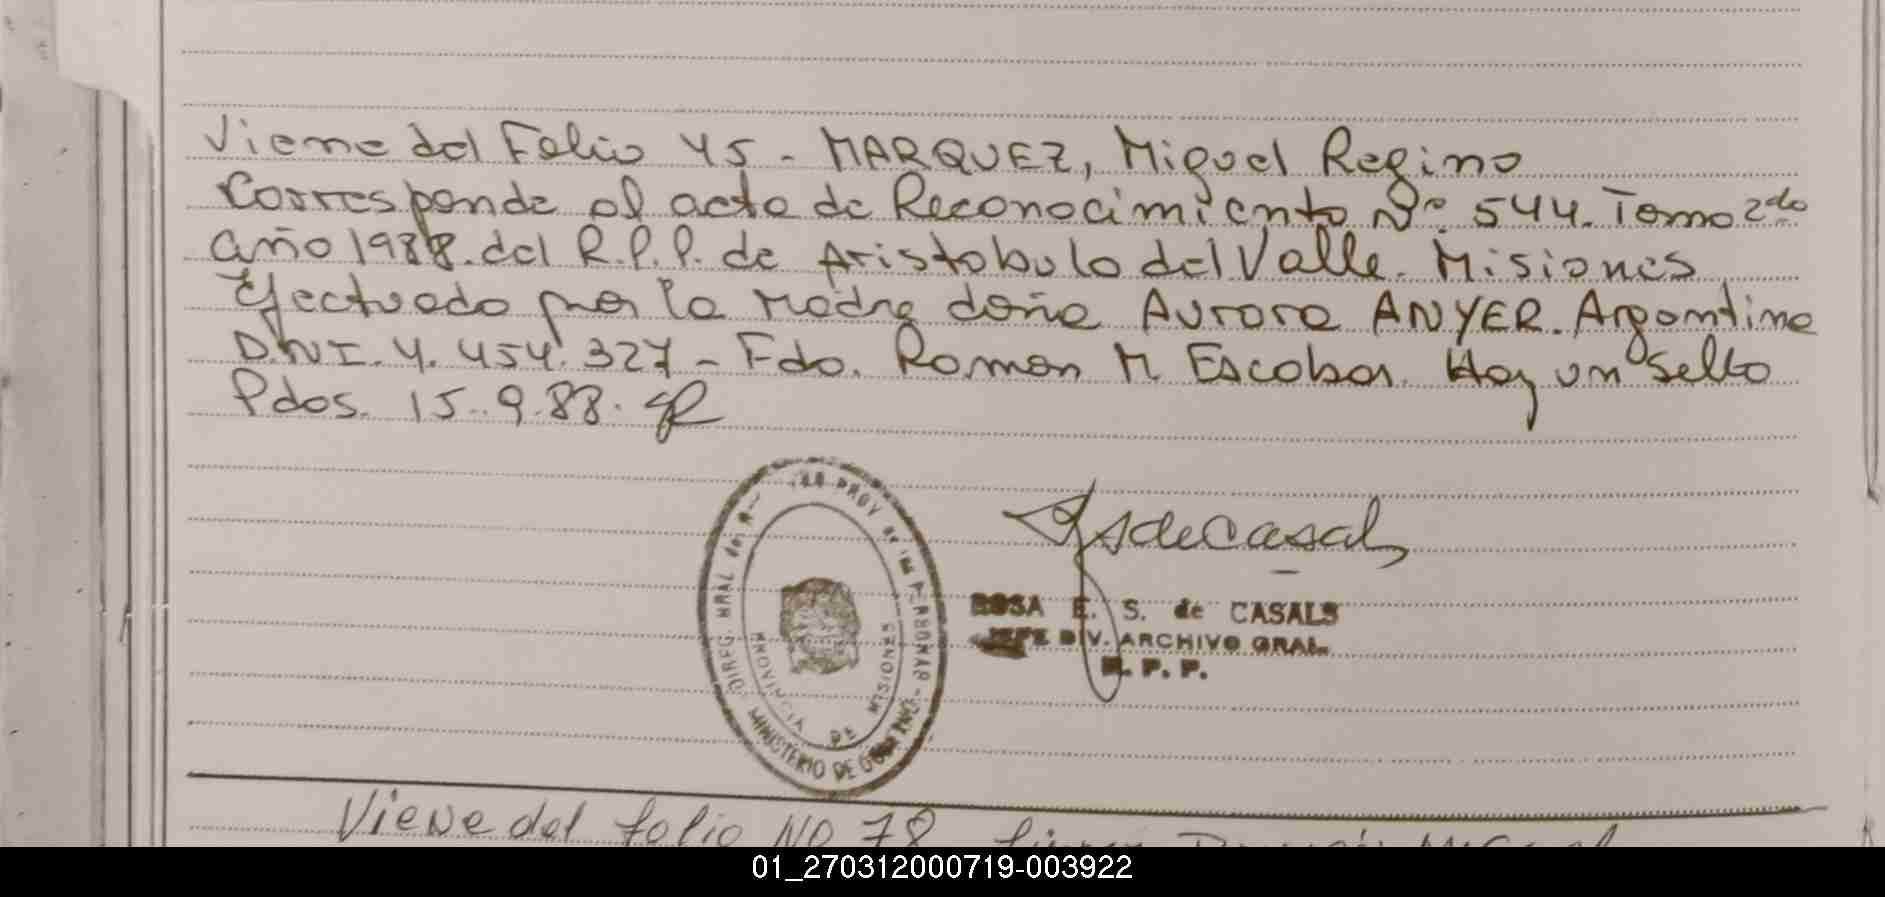 Viene del Folio 45 - MARQUEZ, Miguel Regino
Corresponde al acta de Reconocimiento Nº 544. Tomo 2do
año 1988. del R.P.P. de Aristobulo del Valle. Misiones
Efectuado por la Madre doña Aurora ANYER. Argentina
D.N.I. 4.454.327 - Fdo. Ramon M Escobar. Hay un Sello
Pdos. 15.9.88.
PROV de las P
DIREG. GRAL del R
PROVINCIA DE MISIONES
MINISTERIO DE GOBIERNO
RSdeCasals
ROSA E. S. de CASALS
JEFE DIV. ARCHIVO GRAL.
R. P. P.
Viene del folio No 78 Ramón Miguel
01_270312000719-003922